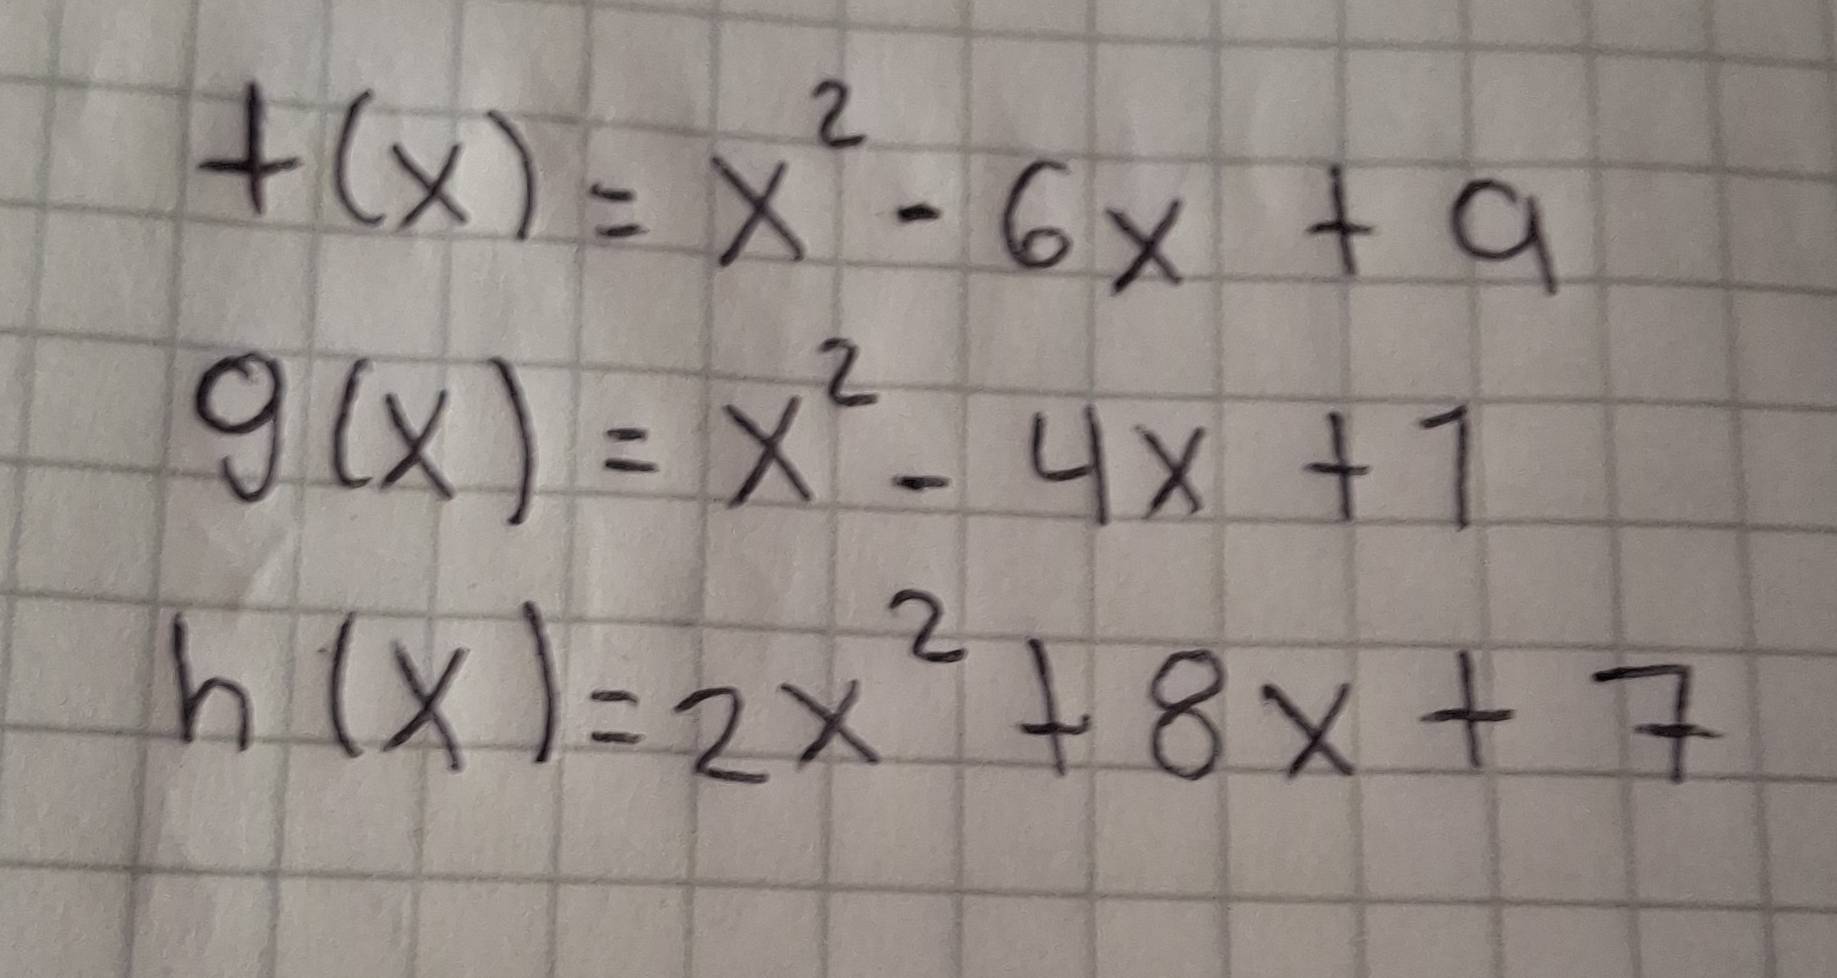 f(x) = x² - 6x + 9
g(x) = x² - 4x + 1
h(x) = 2x² + 8x + 7